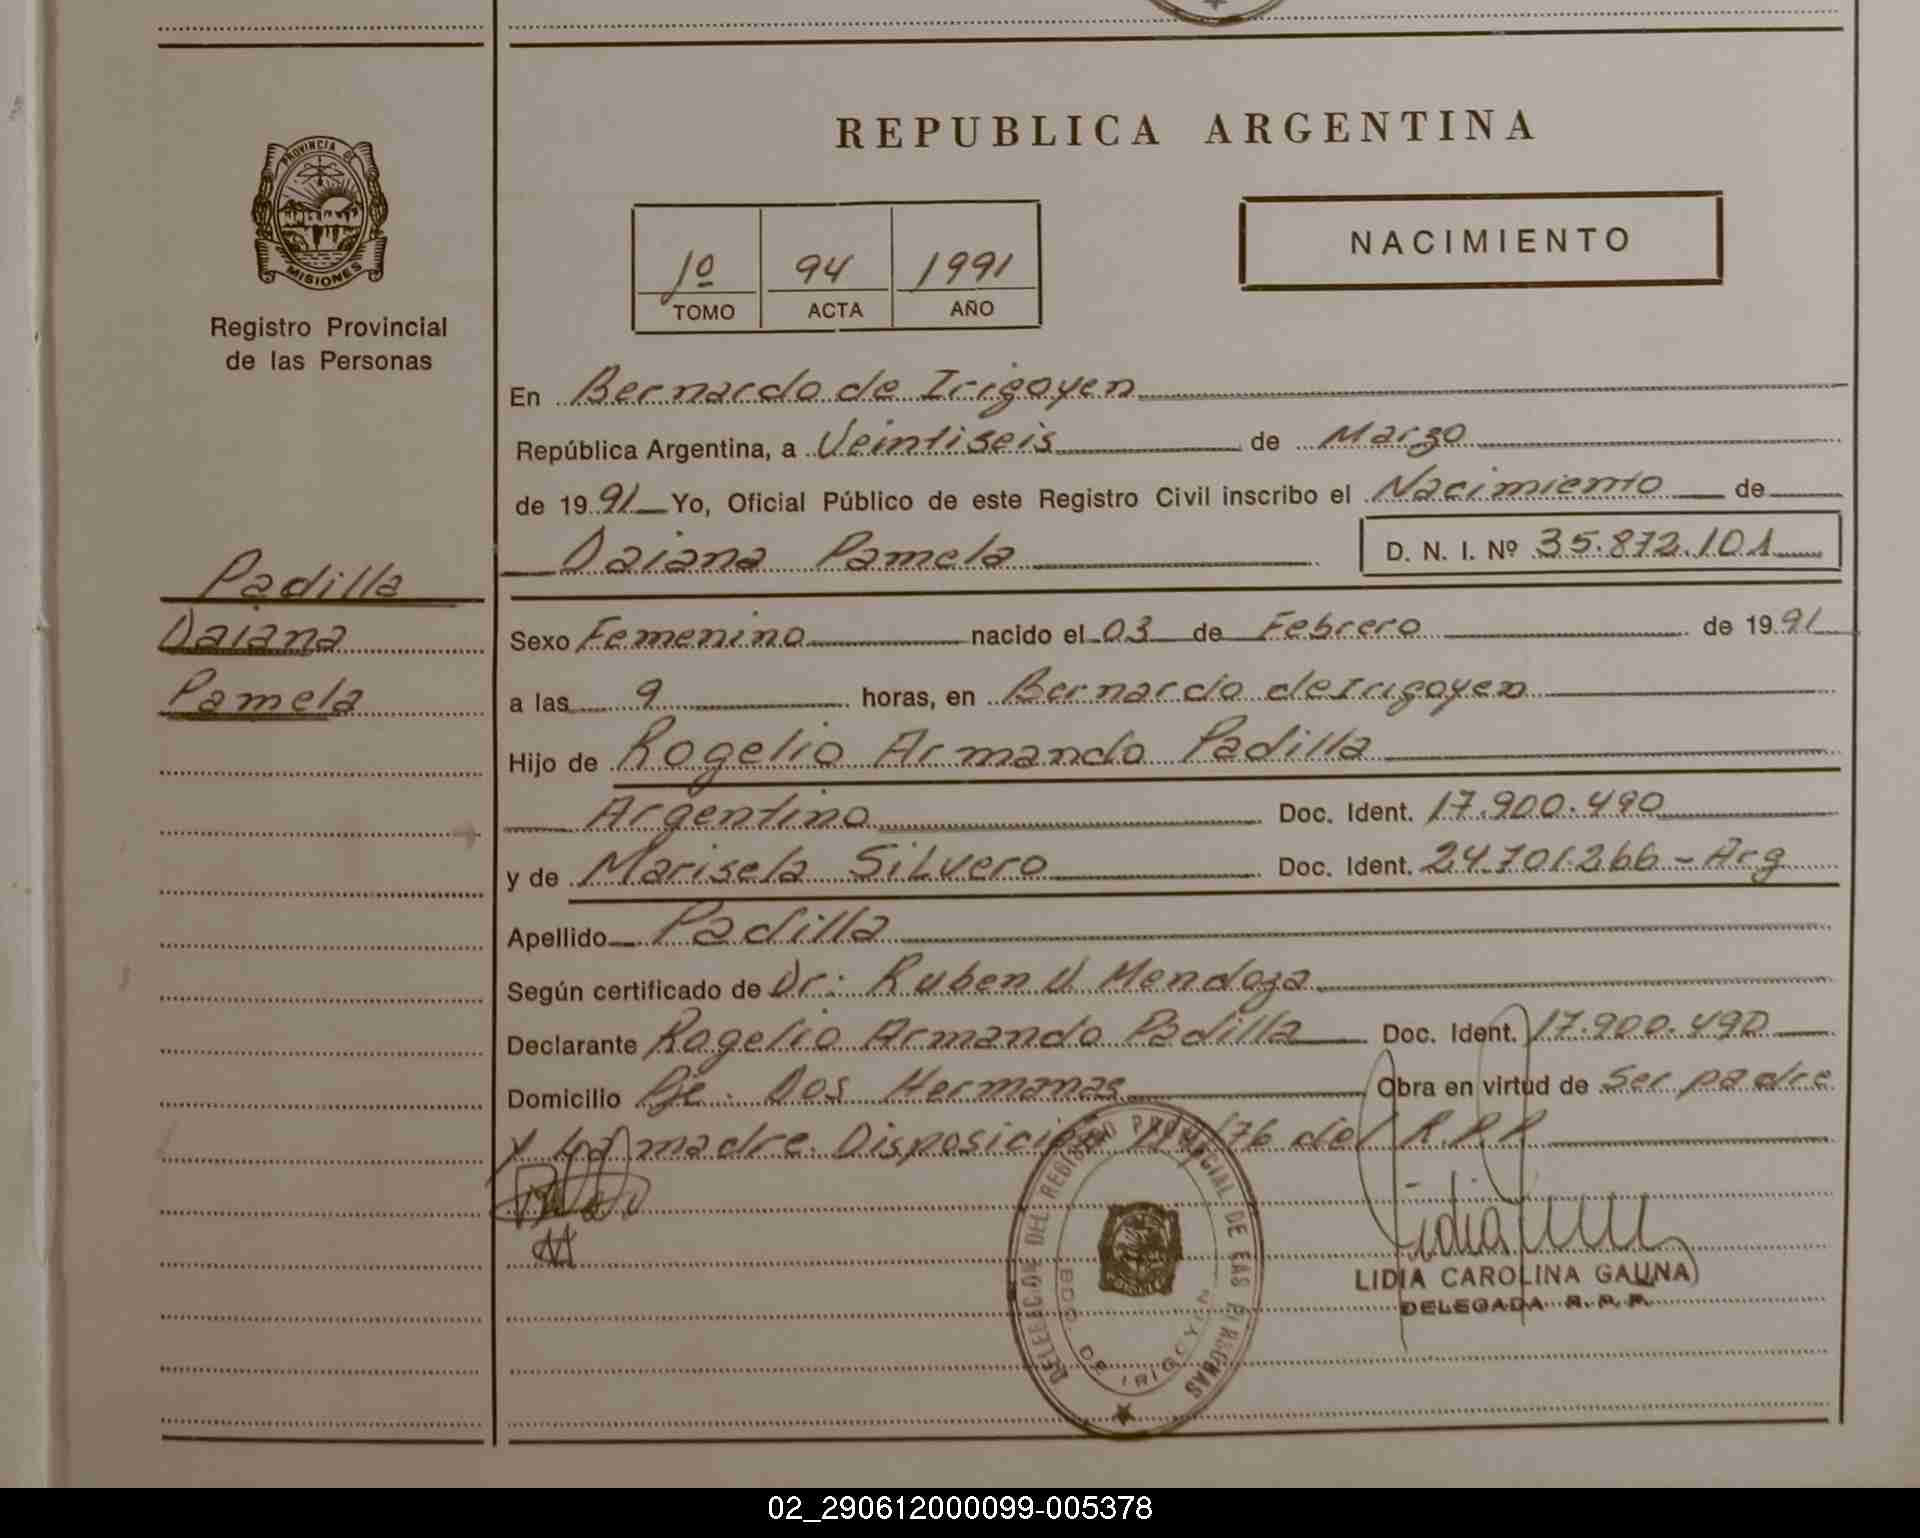 PROVINCIA DE
MISIONES
Registro Provincial
de las Personas
Padilla
Daiana
Pamela
REPUBLICA ARGENTINA
1º 94 1991
TOMO ACTA AÑO
NACIMIENTO
En Bernardo de Irigoyen
República Argentina, a Veintiseis de Marzo
de 1991 Yo, Oficial Público de este Registro Civil inscribo el Nacimiento de
Daiana Pamela D. N. I. Nº 35.872.101
Sexo Femenino nacido el 03 de Febrero de 1991
a las 9 horas, en Bernardo de Irigoyen
Hijo de Rogelio Armando Padilla
Argentino Doc. Ident. 17.900.490
y de Marisela Silvero Doc. Ident. 24.701.266 - Arg
Apellido Padilla
Según certificado de Dr: Ruben V. Mendoza
Declarante Rogelio Armando Padilla Doc. Ident. 17.900.490
Domicilio Pje. Dos Hermanas Obra en virtud de Ser padre
y la madre. Disposición /76 del R.P.P
DELEGACION DEL REGISTRO PROVINCIAL DE LAS PERSONAS
BDO. DE IRIGOYEN
LIDIA CAROLINA GAUNA
DELEGADA R. P. P.
02_290612000099-005378